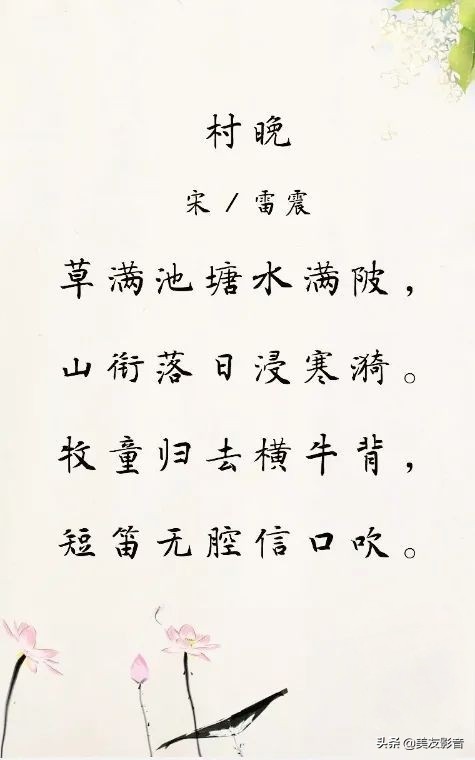 村晚
宋/雷震
草满池塘水满陂，
山衔落日浸寒漪。
牧童归去横牛背，
短笛无腔信口吹。
头条@美友影音